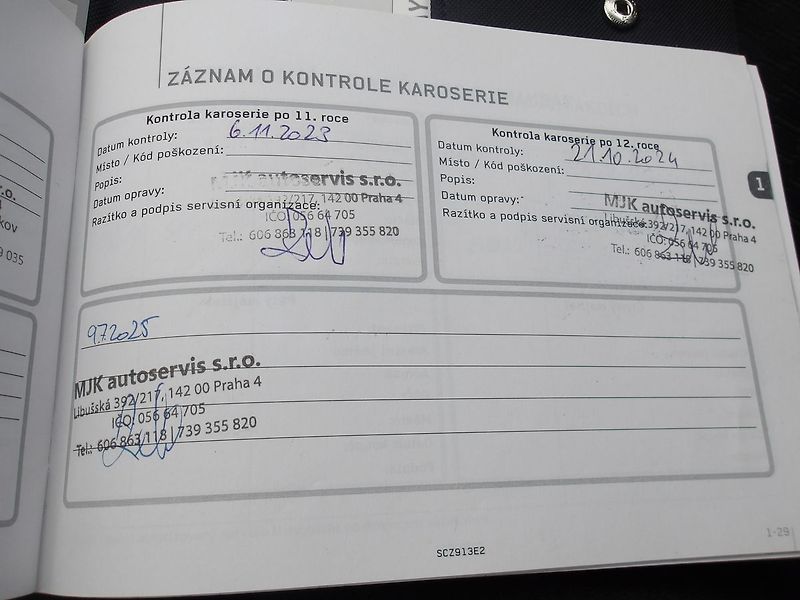 ZÁZNAM O KONTROLE KAROSERIE
Kontrola karoserie po 11. roce
Datum kontroly: 6.11.2023
Místo / Kód poškození:
Popis:
MJK autoservis s.r.o.
Datum opravy:
392/217, 142 00 Praha 4
Razítko a podpis servisní organizace:
IČO: 056 64 705
Tel.: 606 863 118 | 739 355 820
Kontrola karoserie po 12. roce
Datum kontroly: 21.10.2024
Místo / Kód poškození:
Popis:
Datum opravy:
MJK autoservis s.r.o.
Razítko a podpis servisní organizace:
Libušská 392/217, 142 00 Praha 4
IČO: 056 64 705
Tel.: 606 863 118 | 739 355 820
1
9.7.2025
MJK autoservis s.r.o.
Libušská 392/217, 142 00 Praha 4
IČO: 056 64 705
Tel.: 606 863 118 | 739 355 820
SCZ913E2
1-29
9 035